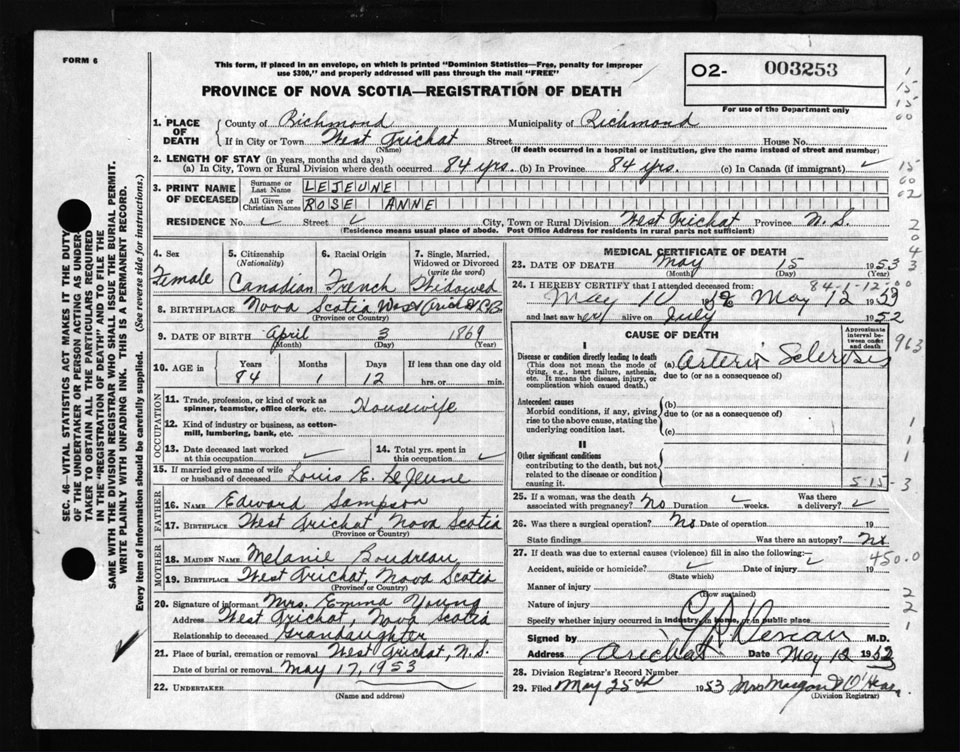 FORM 6
This form, if placed in an envelope, on which is printed "Dominion Statistics—Free, penalty for improper
use $300," and properly addressed will pass through the mail "FREE"
PROVINCE OF NOVA SCOTIA—REGISTRATION OF DEATH
O2- 003253
For use of the Department only
1. PLACE OF DEATH
County of Richmond Municipality of Richmond
If in City or Town West Arichat Street House No.
(Name) (If death occurred in a hospital or institution, give the name instead of street and number)
2. LENGTH OF STAY (in years, months and days)
(a) In City, Town or Rural Division where death occurred 84 yrs. (b) In Province 84 yrs. (c) In Canada (if immigrant)
3. PRINT NAME OF DECEASED
Surname or Last Name LEJEUNE
All Given or Christian Names ROSE ANNE
RESIDENCE No. Street City, Town or Rural Division West Arichat Province N. S.
(Residence means usual place of abode. Post Office Address for residents in rural parts not sufficient)
4. Sex
Female
5. Citizenship (Nationality)
Canadian
6. Racial Origin
French
7. Single, Married, Widowed or Divorced (write the word)
Widowed
8. BIRTHPLACE Nova Scotia West Arichat
(Province or Country)
9. DATE OF BIRTH April 3 1869
(Month) (Day) (Year)
10. AGE in Years Months Days If less than one day old
84 1 12 hrs. or min.
OCCUPATION
11. Trade, profession, or kind of work as spinner, teamster, office clerk, etc. Housewife
12. Kind of industry or business, as cotton-mill, lumbering, bank, etc.
13. Date deceased last worked at this occupation
14. Total yrs. spent in this occupation
15. If married give name of wife or husband of deceased Louis E. LeJeune
FATHER
16. NAME Edward Sampson
17. BIRTHPLACE West Arichat, Nova Scotia
(Province or Country)
MOTHER
18. MAIDEN NAME Melanie Boudreau
19. BIRTHPLACE West Arichat, Nova Scotia
(Province or Country)
20. Signature of informant Mrs. Emma Young
Address West Arichat, Nova Scotia
Relationship to deceased Grandaughter
21. Place of burial, cremation or removal West Arichat, N.S.
Date of burial or removal May 17, 1953
22. UNDERTAKER
(Name and address)
MEDICAL CERTIFICATE OF DEATH
23. DATE OF DEATH May 15 1953
(Month) (Day) (Year)
84-1-12:00
24. I HEREBY CERTIFY that I attended deceased from:
May 10 May 12 19
and last saw her alive on July 1952
CAUSE OF DEATH
Approximate interval between onset and death
I
Disease or condition directly leading to death
(This does not mean the mode of dying, e.g., heart failure, asthenia, etc. It means the disease, injury, or complication which caused death.)
(a) Arterio Sclerosis
due to (or as a consequence of)
Antecedent causes
Morbid conditions, if any, giving rise to the above cause, stating the underlying condition last.
(b)
due to (or as a consequence of)
(c)
II
Other significant conditions
contributing to the death, but not related to the disease or condition causing it.
5-15-3
25. If a woman, was the death associated with pregnancy? No Duration weeks. Was there a delivery?
26. Was there a surgical operation? No Date of operation 19
State findings Was there an autopsy? No
27. If death was due to external causes (violence) fill in also the following:—
Accident, suicide or homicide? Date of injury 19
(State which)
450.0
Manner of injury
(How sustained)
Nature of injury
Specify whether injury occurred in industry, in home, or in public place
Signed by M.D.
Address Arichat Date May 12 195
28. Division Registrar's Record Number
29. Filed May 25th 1953 Mrs
(Division Registrar)
963
SEC. 46—VITAL STATISTICS ACT MAKES IT THE DUTY
OF THE UNDERTAKER OR PERSON ACTING AS UNDER-
TAKER TO OBTAIN ALL THE PARTICULARS REQUIRED
IN THE "REGISTRATION OF DEATH" AND TO FILE THE
SAME WITH THE DIVISION REGISTRAR WHO SHALL ISSUE THE BURIAL PERMIT.
WRITE PLAINLY WITH UNFADING INK. THIS IS A PERMANENT RECORD.
Every item of information should be carefully supplied. (See reverse side for instructions.)